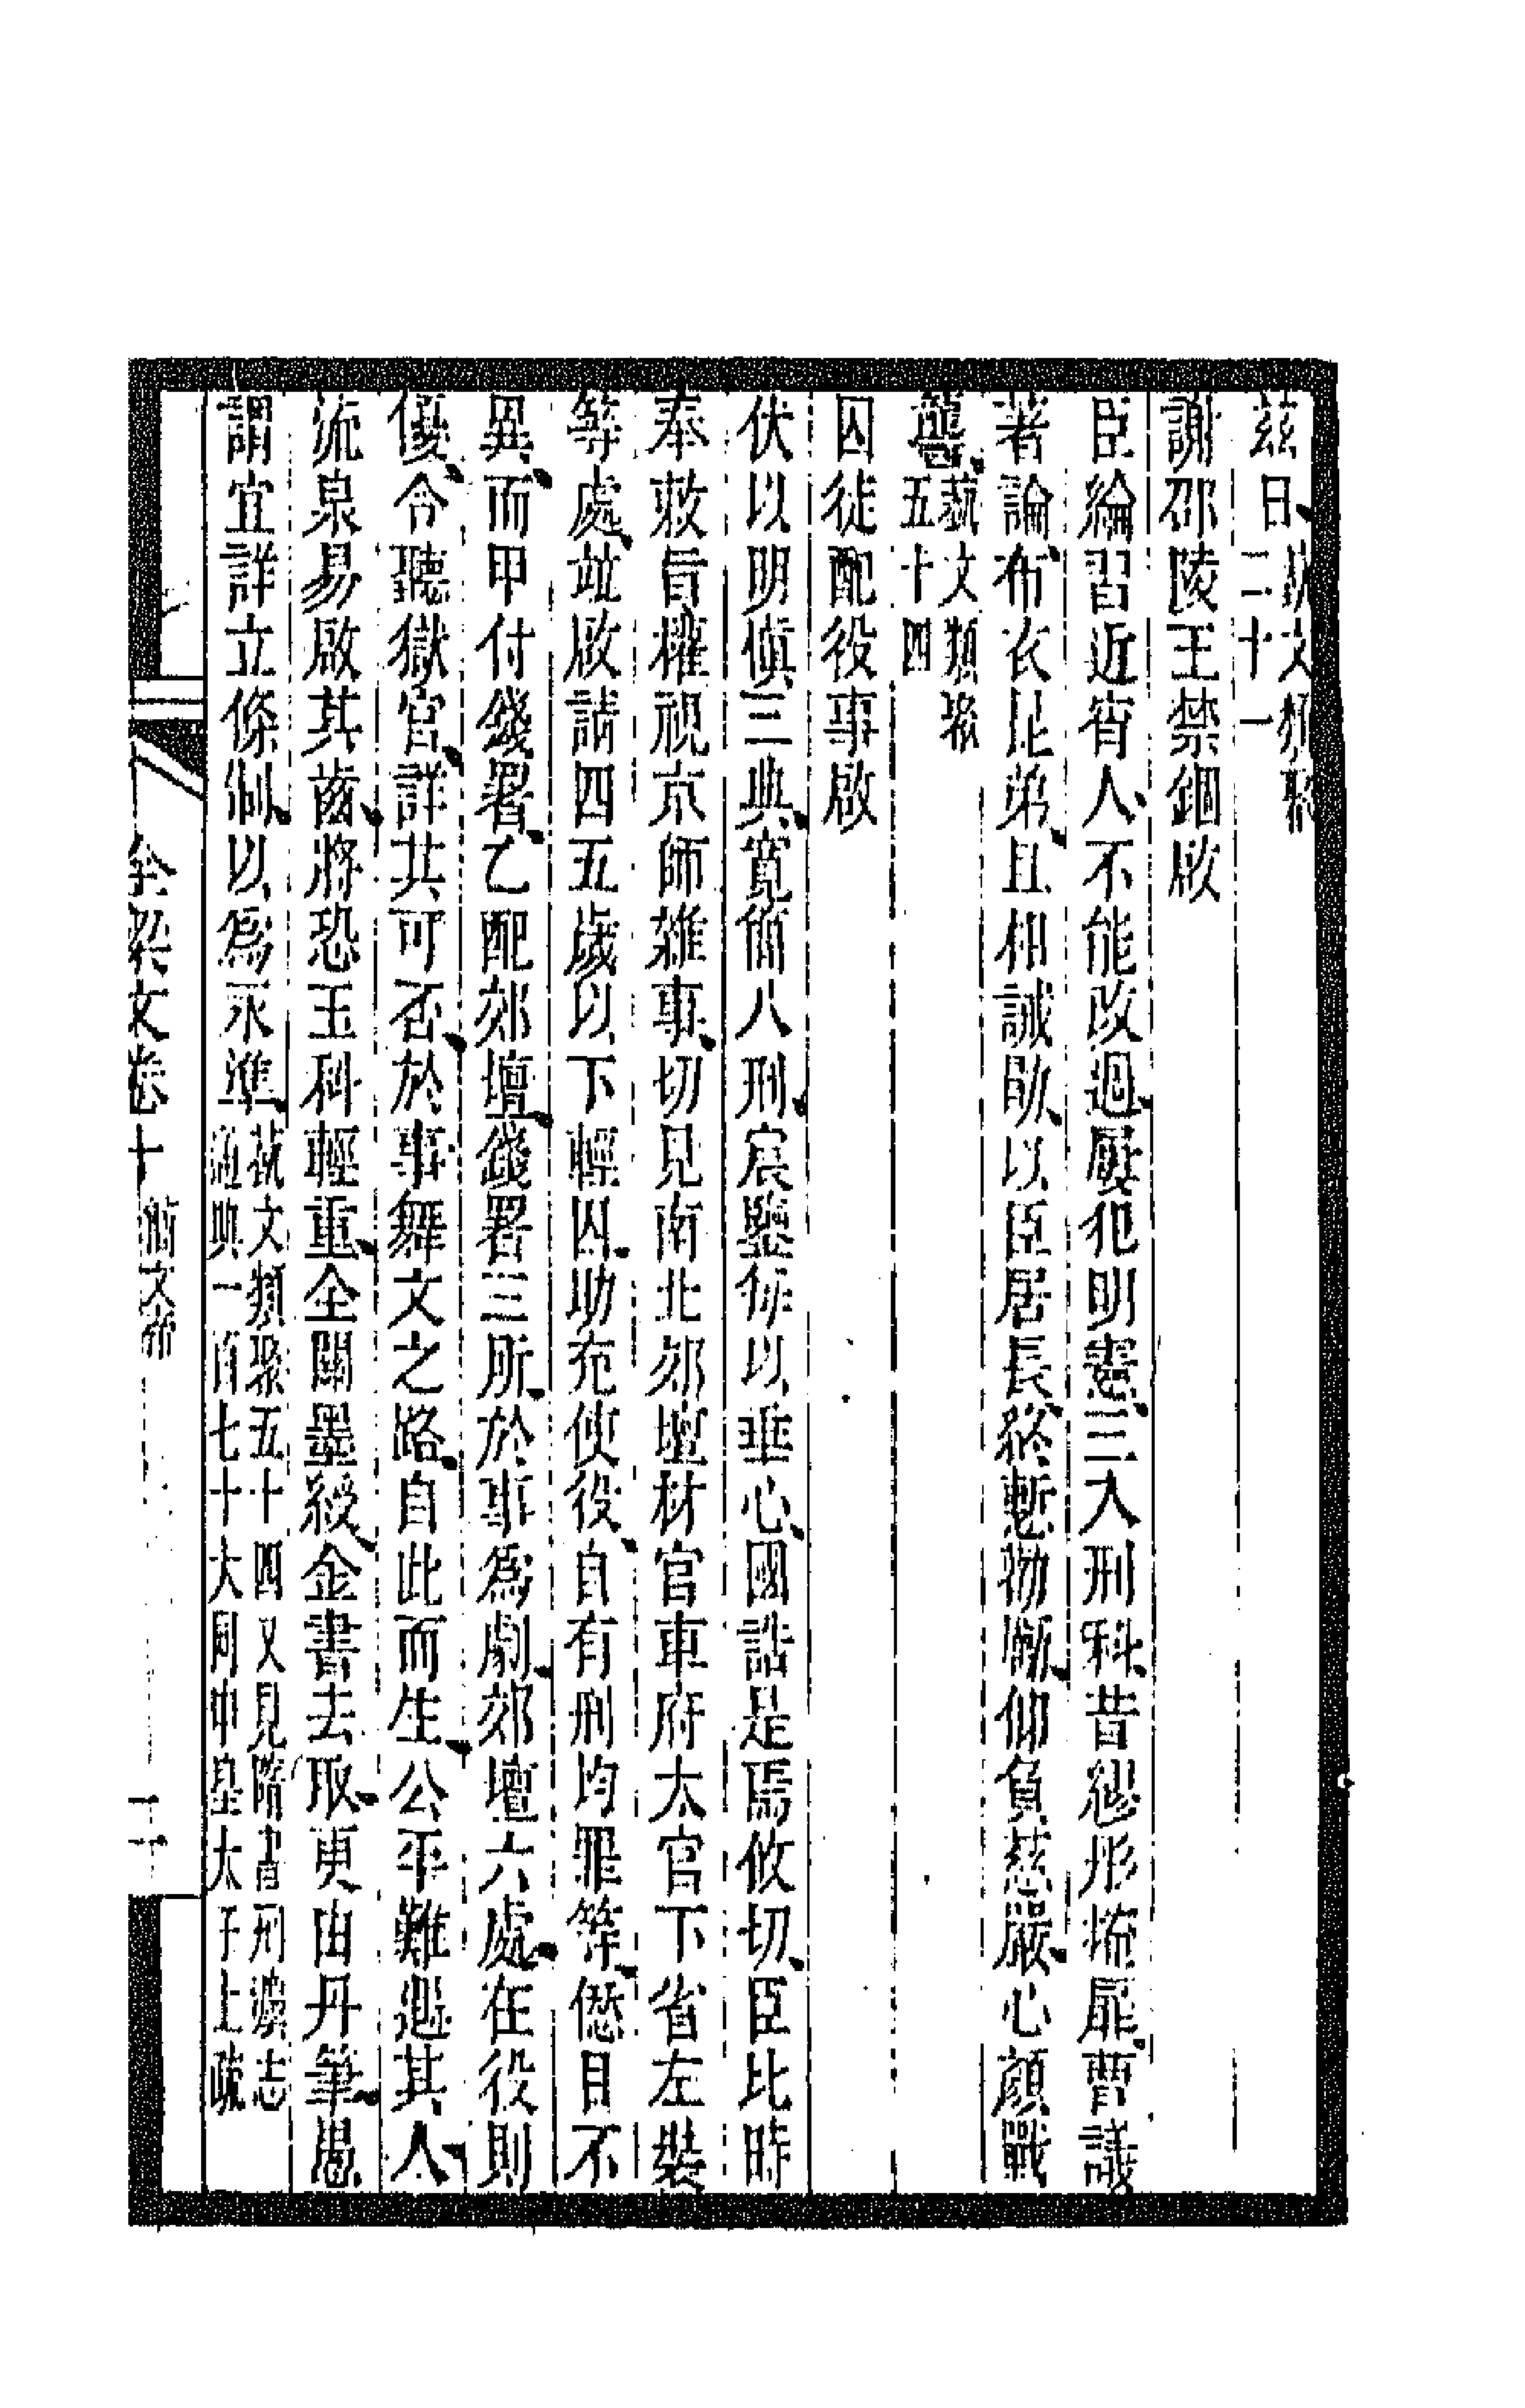 茲日、藝文類聚二十一
謝邵陵王禁錮啟
臣綸習近宵人、不能改過、屢犯明憲、三入刑科、昔繆彤掩扉、曹議
著論、布衣昆弟、且相誡勖、以臣居長、終慙物慚、仰負慈嚴、心顏戰
讋、藝文類聚五十四
囚徒配役事啟
伏以明慎三典、寬簡八刑、宸鑒每以垂心、國誥是焉攸切、臣比時
奉敕旨權視京師雜事、切見南北郊壇材官車府太官下省左裝
等處、竝啟請四五歲以下輕囚、助充使役、自有刑均罪等、愆目不
異、而甲付錢署、乙配郊壇、錢署三所、於事爲劇、郊壇六處、在役則
優、今聽獄官、詳其可否、於事舞文之路、自此而生、公平難遇其人、
流泉易啟其齒、將恐玉科輕重、全關墨綬、金書去取、更由丹筆、愚
謂宜詳立條制、以爲永準、藝文類聚五十四又見隋書刑法志通典一百七十大同中皇太子上疏
全梁文卷十 簡文帝 二